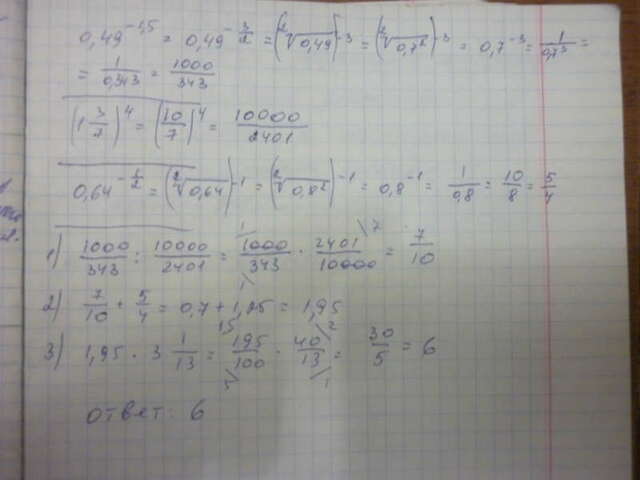 0,49^{-1,5} = 0,49^{-\frac{3}{2}} = (\sqrt[2]{0,49})^{-3} = (\sqrt[2]{0,7^2})^{-3} = 0,7^{-3} = \frac{1}{0,7^3} =
= \frac{1}{0,343} = \frac{1000}{343}
(1\frac{3}{7})^4 = (\frac{10}{7})^4 = \frac{10000}{2401}
0,64^{-\frac{1}{2}} = (\sqrt[2]{0,64})^{-1} = (\sqrt[2]{0,8^2})^{-1} = 0,8^{-1} = \frac{1}{0,8} = \frac{10}{8} = \frac{5}{4}
1) \frac{1000}{343} : \frac{10000}{2401} = \frac{1000}{343} · \frac{2401}{10000} = \frac{7}{10}
2) \frac{7}{10} + \frac{5}{4} = 0,7 + 1,25 = 1,95
3) 1,95 · 3\frac{1}{13} = \frac{195}{100} · \frac{40}{13} = \frac{30}{5} = 6
ответ: 6